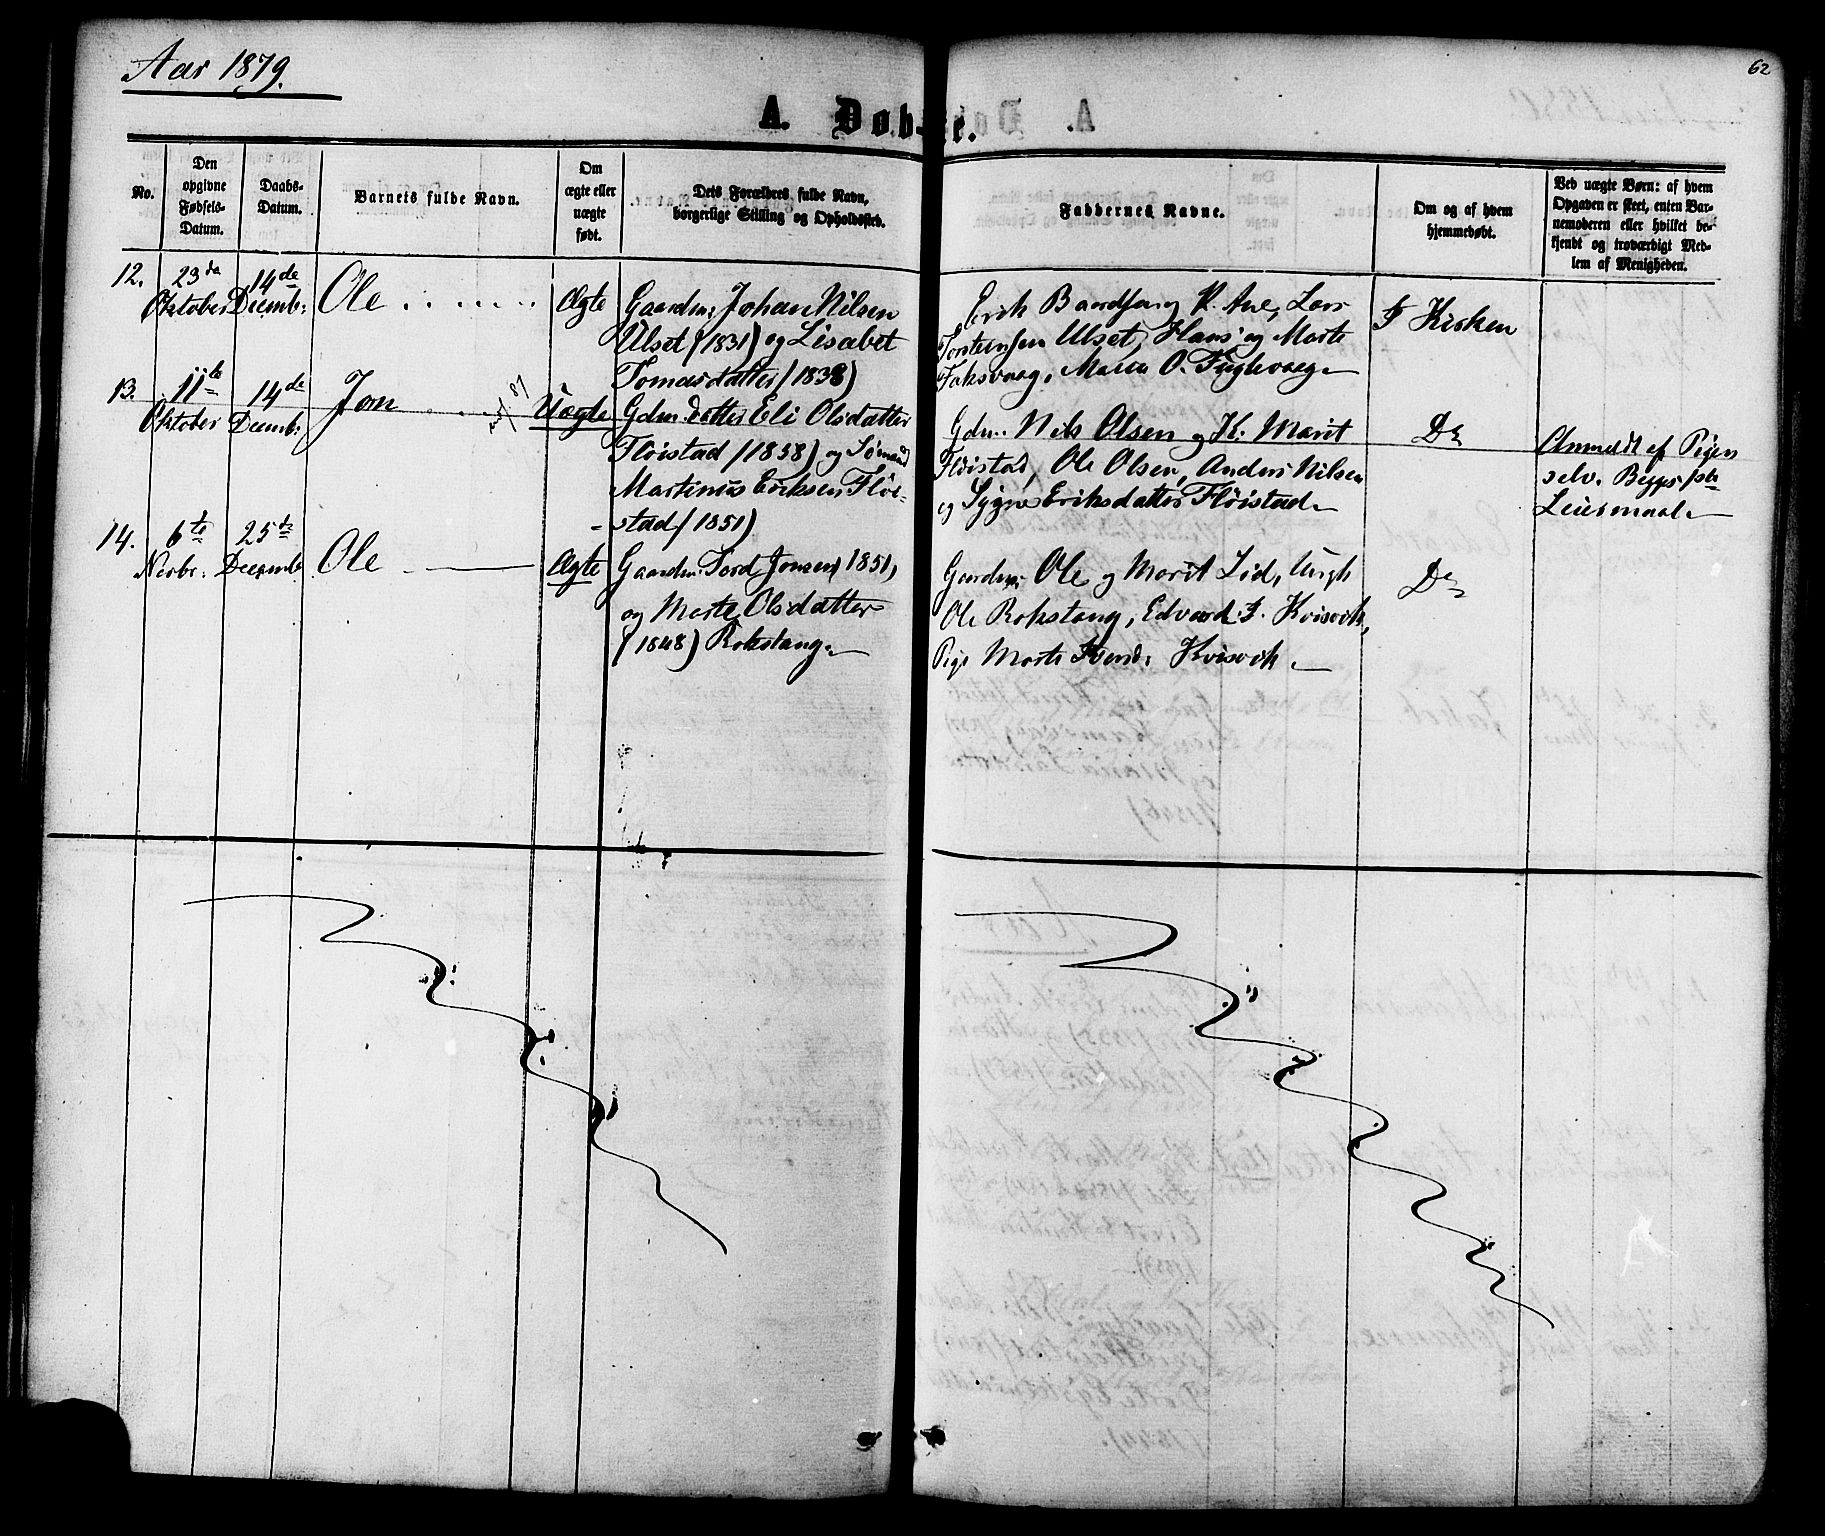 Aar 1879.
62
A. Døb-te.
No.
Den opgivne Fødsels-Datum.
Daabs-Datum.
Barnets fulde Navn.
Om ægte eller uægte født.
Dets Forældres fulde Navn, borgerlige Stilling og Opholdssted.
Faddernes Navne.
Om og af hvem hjemmedøbt.
Ved uægte Børn: af hvem Opgaven er skeet, enten Barnemoderen eller hvilket bekjendt og troværdigt Medlem af Menigheden.
12.
23de Oktober
14de Decemb:
Ole
Ægte
Gaardm: Johan Nilsen
Ulset (1831) og Lisabet
Tomasdatter (1838)
Erik Baardsang K. Ane, Lars
Torstensen Ulset, Hans og Marte
Faksvaag, Maria O. Fuglvaag
I Kirken
13.
11te Oktober
14de Decemb:
Jon
Uægte
Gdm. datter Eli Olsdatter
Fløistad (1858) og Sømand
Martinus Eriksen Fløi-
-stad (1851)
Gdm. Nils Olsen og K: Marit
Fløistad, Ole Olsen, Anders Nilsen
og Sygne Eriksdatter Fløistad
Do
Anmeldt af Pigen
selv. Begges 1ste
Leiermaal
14.
6te Novbr.
25de Decemb
Ole
Ægte
Gaardm. Tord Jonsen (1851)
og Marte Olsdatter
(1848) Rokstang
Gaardm: Ole og Marit Lød, Ungk
Ole Rokstang, Edvard I. Kvisvik,
Pige Marte Svend: Kvisvik
Do